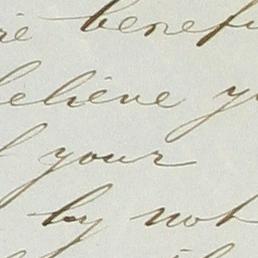 benef
believe y
your
by not